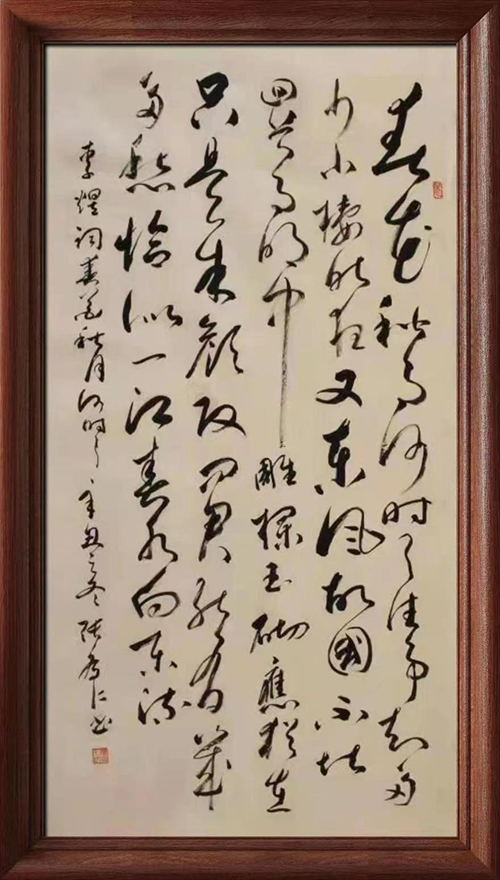 春花秋月何时了往事知多
少小樓昨夜又东风故國不堪
回首月明中雕欄玉砌應犹在
只是朱颜改问君能有幾
多愁恰似一江春水向东流
李煜词春花秋月何时了辛丑之冬张仁书